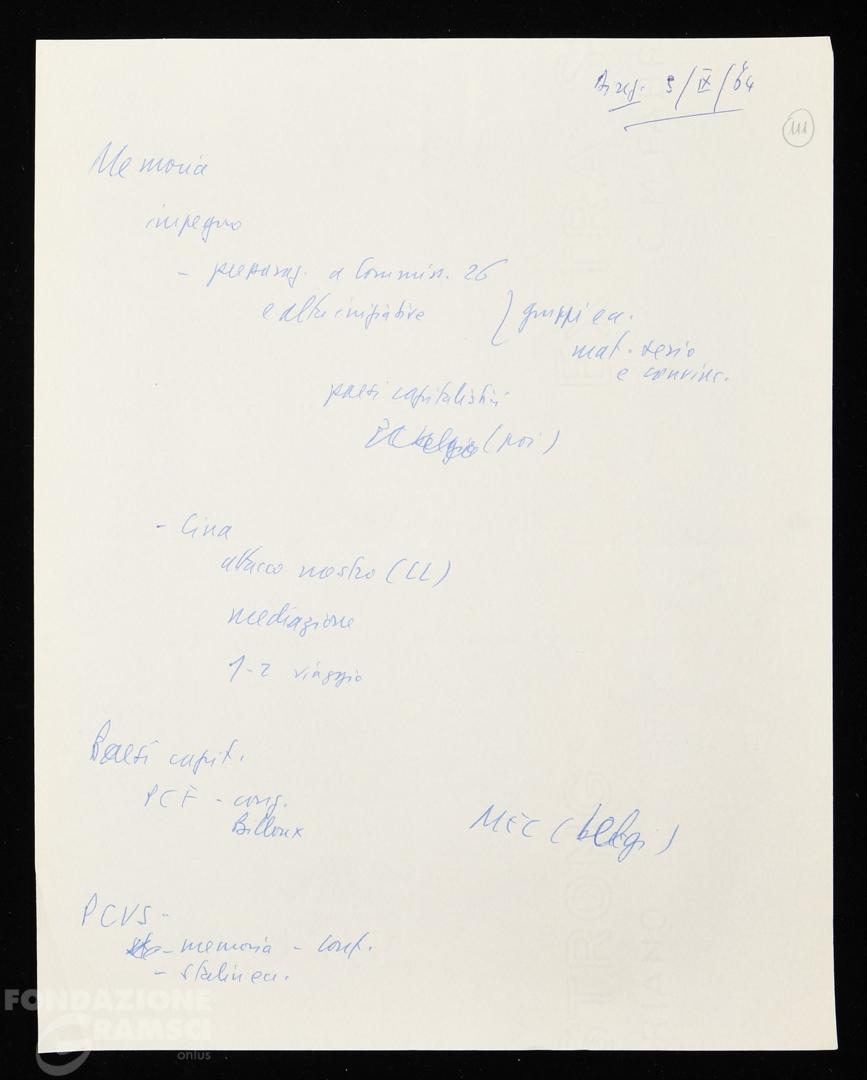 Direz. 3/IX/64
111
Memoria
impegno
- preparaz. a Commiss. 26
e altre iniziative
gruppi ecc.
mat. serio
e convinc.
paesi capitalistici
(noi)
- Cina
attacco nostro (LL)
mediazione
1-2 viaggio
Paesi capit.
PCF - cong.
Billoux
MEC (belgi)
PCUS -
- memoria - conf.
- stalin ecc.
FONDAZIONE
GRAMSCI
onlus